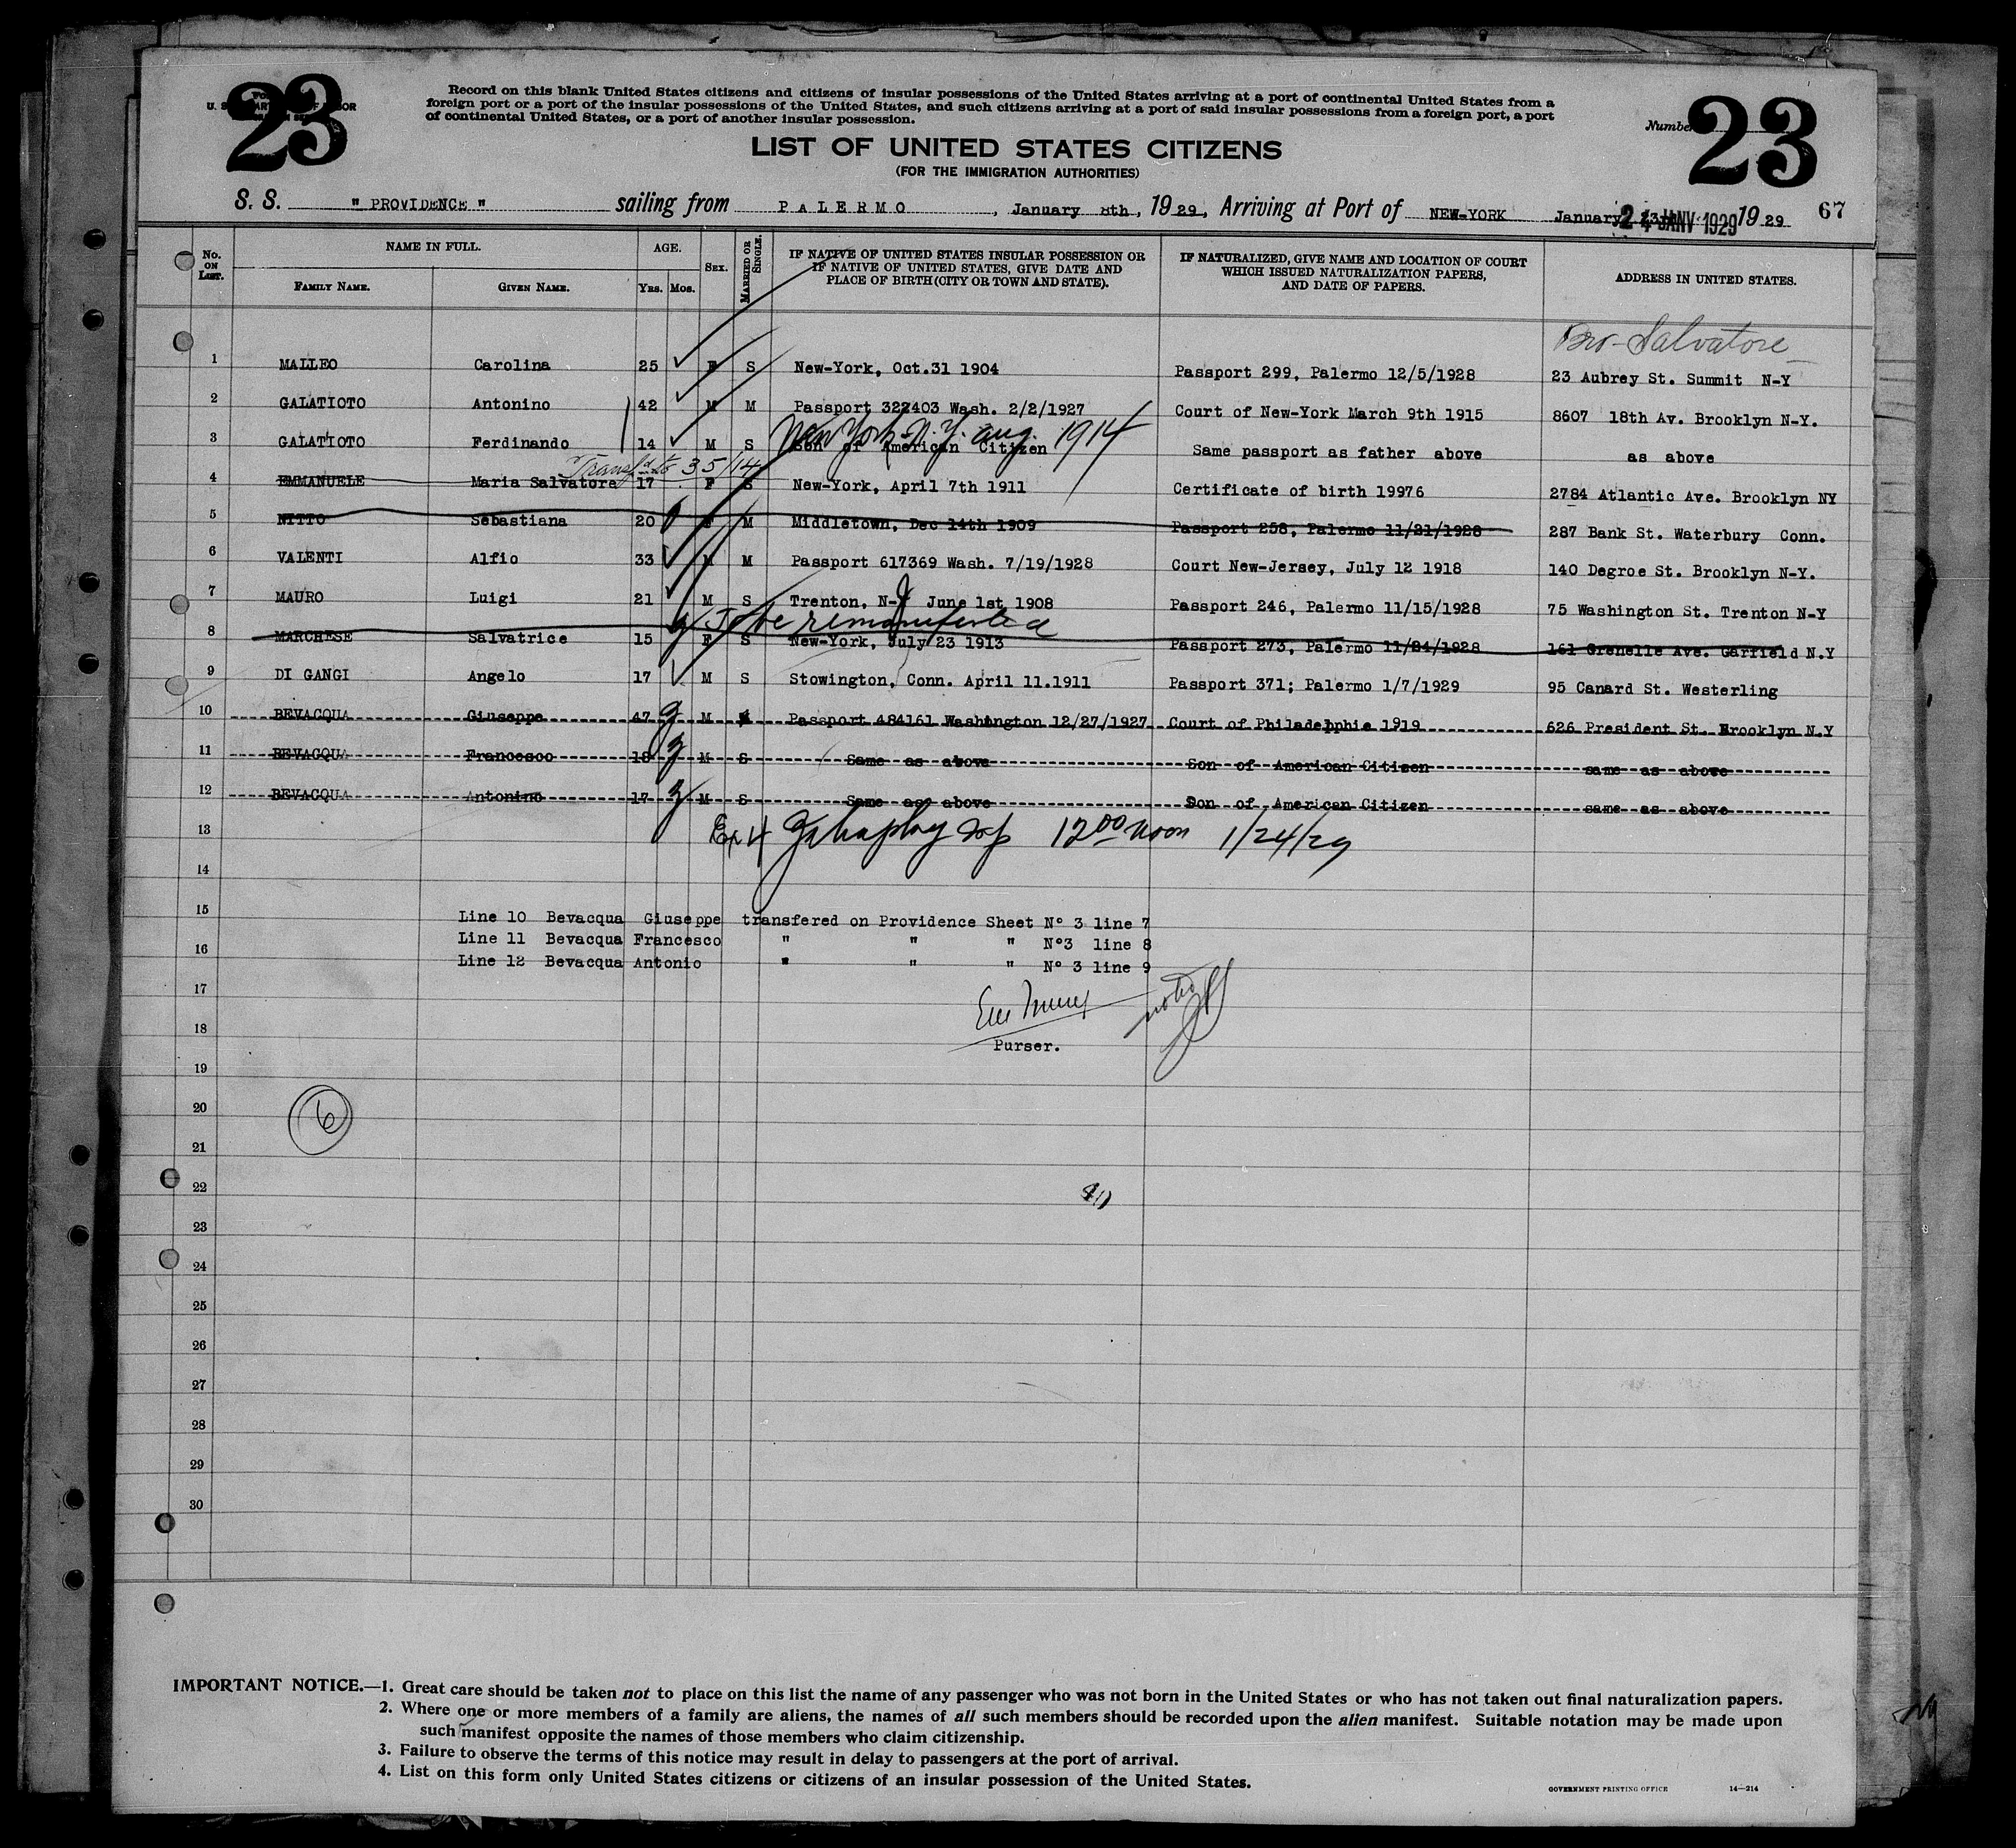 23
23
FO
U. S. DEPARTMENT OF LABOR
Record on this blank United States citizens and citizens of insular possessions of the United States arriving at a port of continental United States from a
foreign port or a port of the insular possessions of the United States, and such citizens arriving at a port of said insular possessions from a foreign port, a port
of continental United States, or a port of another insular possession.
Number
LIST OF UNITED STATES CITIZENS
(FOR THE IMMIGRATION AUTHORITIES)
S. S. " PROVIDENCE " sailing from PALERMO, January 8th, 1929, Arriving at Port of NEW-YORK January 23th 24 JANV 1929 1929 67
No. ON LIST. NAME IN FULL. FAMILY NAME. GIVEN NAME. AGE. YRS. MOS. SEX. MARRIED OR SINGLE. IF NATIVE OF UNITED STATES INSULAR POSSESSION OR IF NATIVE OF UNITED STATES, GIVE DATE AND PLACE OF BIRTH (CITY OR TOWN AND STATE). IF NATURALIZED, GIVE NAME AND LOCATION OF COURT WHICH ISSUED NATURALIZATION PAPERS, AND DATE OF PAPERS. ADDRESS IN UNITED STATES.
Bro- Salvatore
1 MALLEO Carolina 25 F S New-York, Oct.31 1904 Passport 299, Palermo 12/5/1928 23 Aubrey St. Summit N-Y
2 GALATIOTO Antonino 42 M M Passport 322403 Wash. 2/2/1927 Court of New-York March 9th 1915 8607 18th Av. Brooklyn N-Y.
New York N.Y. Aug. 1914
3 GALATIOTO Ferdinando 14 M S Son of American Citizen Same passport as father above as above
Transf'd to 35/14
4 EMMANUELE Maria Salvatore 17 F S New-York, April 7th 1911 Certificate of birth 19976 2784 Atlantic Ave. Brooklyn NY
5 NITTO Sebastiana 20 F M Middletown, Dec 14th 1909 Passport 258, Palermo 11/21/1928 287 Bank St. Waterbury Conn.
6 VALENTI Alfio 33 M M Passport 617369 Wash. 7/19/1928 Court New-Jersey, July 12 1918 140 Degroe St. Brooklyn N-Y.
7 MAURO Luigi 21 M S Trenton, N-J June 1st 1908 Passport 246, Palermo 11/15/1928 75 Washington St. Trenton N-Y
To be remanifested
8 MARCHESE Salvatrice 15 F S New-York, July 23 1913 Passport 273, Palermo 11/24/1928 161 Grenelle Ave. Garfield N.Y
9 DI GANGI Angelo 17 M S Stowington, Conn. April 11.1911 Passport 371; Palermo 1/7/1929 95 Canard St. Westerling
10 BEVACQUA Giuseppe 47 M M Passport 484161 Washington 12/27/1927 Court of Philadelphia 1919 626 President St. Brooklyn N.Y
11 BEVACQUA Francesco 18 M S Same as above Son of American Citizen same as above
12 BEVACQUA Antonino 17 M S Same as above Son of American Citizen same as above
13 12 00 noon 1/24/29
14
15 Line 10 Bevacqua Giuseppe transfered on Providence Sheet N° 3 line 7
Line 11 Bevacqua Francesco " " " N°3 line 8
16
Line 12 Bevacqua Antonio " " " N° 3 line 9
17
18
Purser.
19
20
6
21
22
23
24
25
26
27
28
29
30
IMPORTANT NOTICE.—1. Great care should be taken not to place on this list the name of any passenger who was not born in the United States or who has not taken out final naturalization papers.
2. Where one or more members of a family are aliens, the names of all such members should be recorded upon the alien manifest. Suitable notation may be made upon
such manifest opposite the names of those members who claim citizenship.
3. Failure to observe the terms of this notice may result in delay to passengers at the port of arrival.
4. List on this form only United States citizens or citizens of an insular possession of the United States.
GOVERNMENT PRINTING OFFICE 14—214